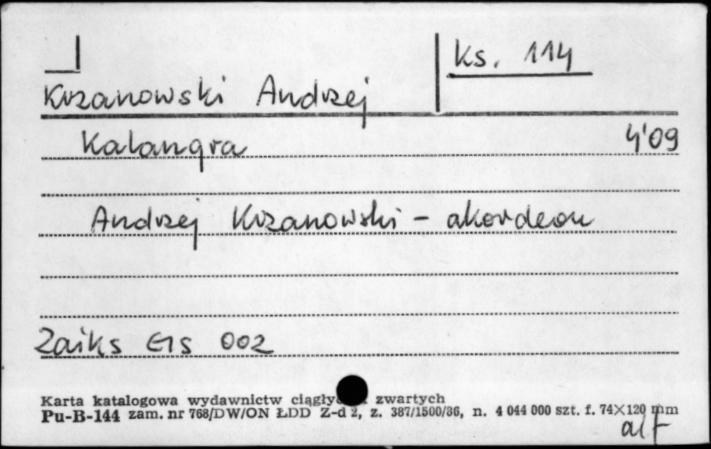 Ks. 114
Krzanowski Andrzej
Kalangra 4'09
Andrzej Krzanowski – akordeon
Zaiks E1S 002
Karta katalogowa wydawnictw zwartych
Pu-B-144 zam. nr 768/DW/ON ŁDD Z-d 2, z. 387/1500/86, n. 4 044 000 szt. f. 74×120 mm